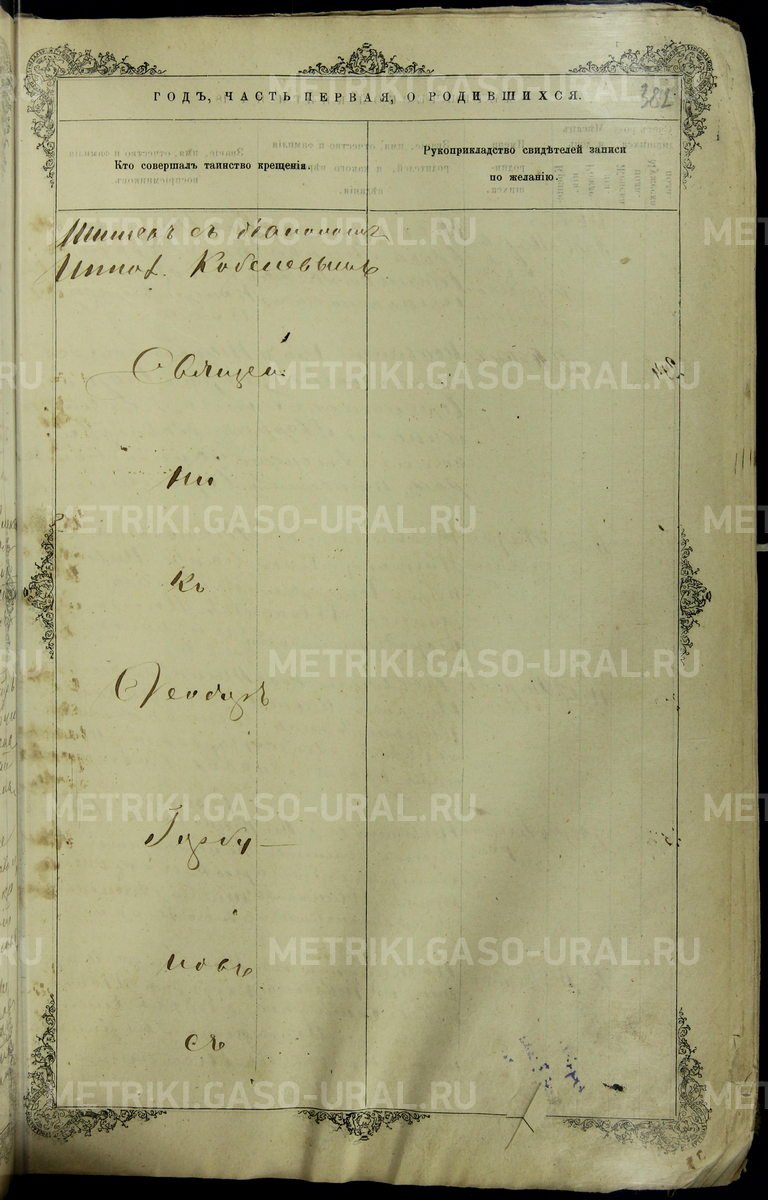 ГОДЪ, ЧАСТЬ ПЕРВАЯ, О РОДИВШИХСЯ.
382
Кто совершалъ таинство крещенія.
Рукоприкладство свидѣтелей записи
по желанію.
съ діакономъ
Кобелевымъ
Священ.
ни
къ
Ѳеодоръ
Горбу
новъ
съ
METRIKI.GASO-URAL.RU